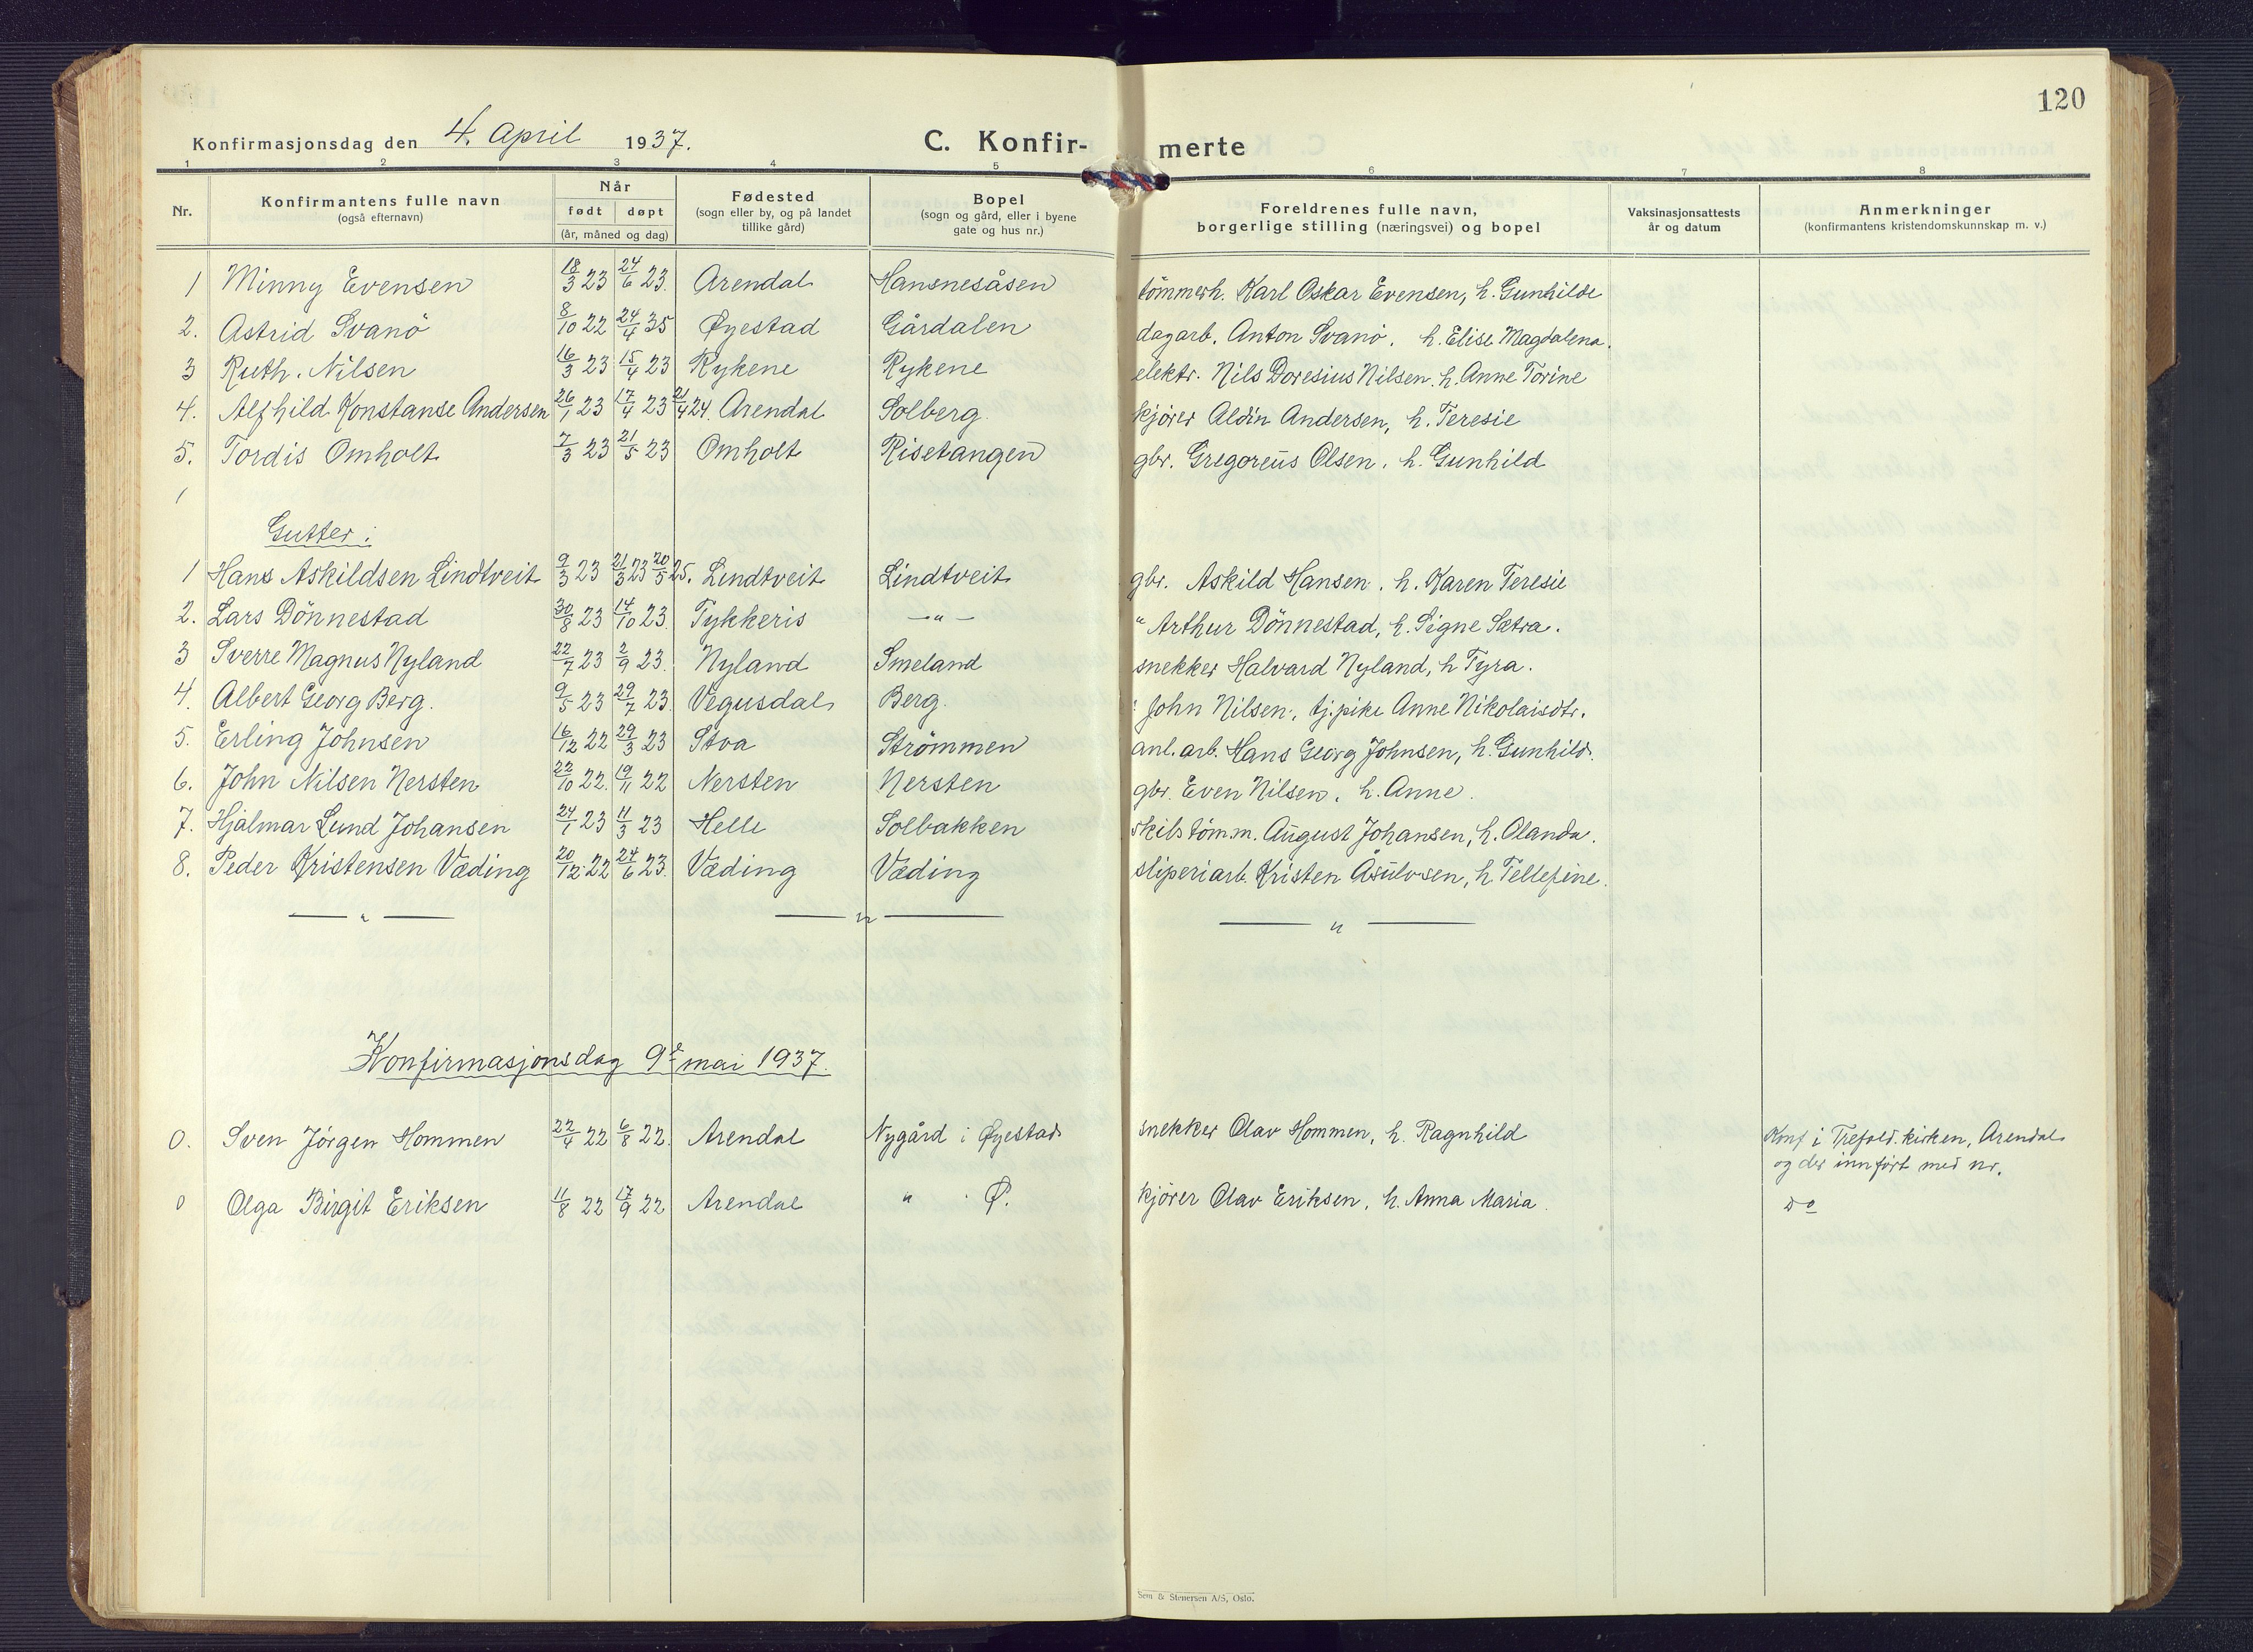 120
Konfirmasjonsdag den 4. April 1937. C. Konfir- merte
1 2 3 4 5 6 7 8
Nr. Konfirmantens fulle navn (også efternavn) Når født døpt (år, måned og dag) Fødested (sogn eller by, og på landet tillike gård) Bopel (sogn og gård, eller i byene gate og hus nr.) Foreldrenes fulle navn, borgerlige stilling (næringsvei) og bopel Vaksinasjonsattests år og datum Anmerkninger (konfirmantens kristendomskunnskap m. v.)
1 Minny Evensen 18/3 23 24/6 23. Arendal Hansnesåsen tömmerh. Karl Oskar Evensen, h. Gunhilde
2. Astrid Svanö 8/10 22 24/4 35 Øyestad Gårdalen dagarb. Anton Svanö. h. Elise Magdalena.
3 Ruth. Nilsen 16/3 23 15/4 23 Rykene Rykene elektr. Nils Doresius Nilsen. h. Anne Torine
4. Alfhild Konstanse Andersen 26/1 23 17/4 23 21/4 24. Arendal Solberg. kjörer Aldin Andersen, h. Teresie
5. Tordis Omholt 7/3 23 21/5 23 Omholt Risetangen gbr. Gregoreus Olsen. h. Gunhild
1
Gutter:
1 Hans Askildsen Lindtveit 9/3 23 21/3 23 20/5 25. Lindtveit Lindtveit gbr. Askild Hansen. h. Karen Teresie
2. Lars Dönnestad 30/8 23 14/10 23. Tykkeris —"— " Arthur Dönnestad, h. Signe Sætra.
3 Sverre Magnus Nyland 22/7 23 2/9 23. Nyland Smeland snekker Halvard Nyland, h Tyra.
4. Albert Georg Berg. 9/5 23 29/7 23. Vegusdal Berg. " John Nilsen, tj.pike Anne Nikolaisdtr.
5. Erling Johnsen 16/12 22 29/3 23 Stva Strömmen anl. arb. Hans Georg Johnsen, h. Gunhild.
6. John Nilsen Nersten 22/10 22. 19/11 22 Nersten Nersten gbr. Even Nilsen. h. Anne.
7. Hjalmar Lund Johansen 24/1 23 11/3 23 Helle Solbakken skibstöm.m. August Johansen, h. Olanda.
8. Peder Kristensen Væding 20/12 22 24/6 23. Væding Væding sliperiarb. Kristen Åsulvsen, h. Tellefine.
—"— —"— —"—
Konfirmasjonsdag 9de mai 1937.
0. Sven Jörgen Hommen 22/4 22 6/8 22. Arendal Nygård i Øyestad snekker Olav Hommen, h. Ragnhild Konf i Trefold.kirken, Arendal
og der innført med nr.
0 Olga Birgit Eriksen 11/8 22 17/9 22 Arendal " Ø. kjörer Olav Eriksen, h. Anna Maria. do
Sem & Stenersen A/S, Oslo.